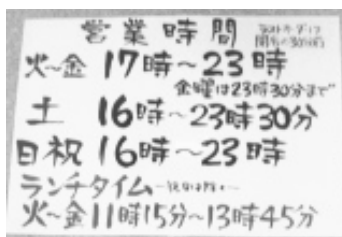 営業時間 ラストオーダーは
閉店の30分前
火~金 17時~23時
金曜は23時30分まで
土 16時~23時30分
日祝 16時~23時
ランチタイム
火~金 11時15分~13時45分